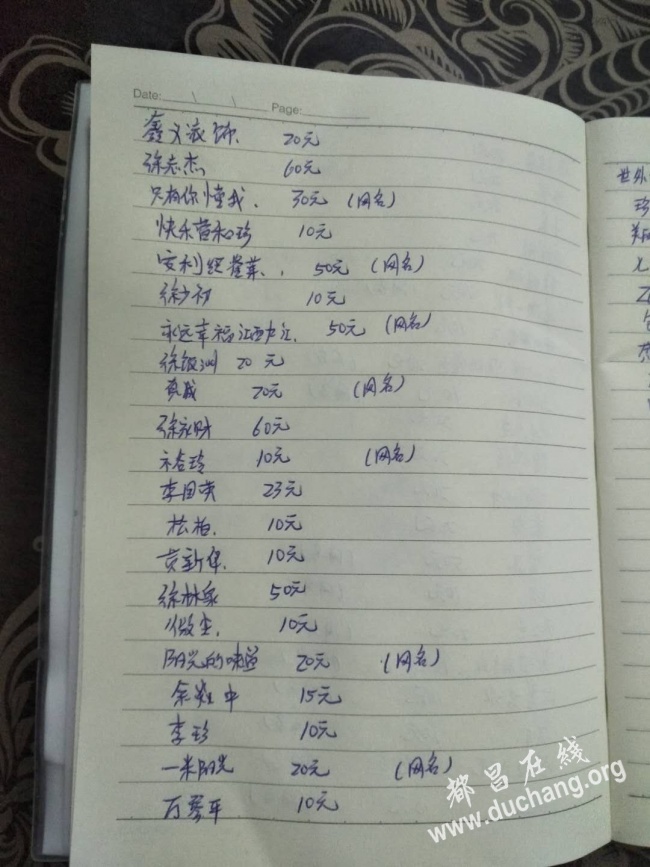 Date: \ \ Page:
鑫义装饰. 20元
徐志杰 60元
只有你懂我. 30元 (网名)
快乐营和珍 10元
安利经营菜. 50元 (网名)
徐少初 10元
永远幸福江西九江. 50元 (网名)
徐银洲 20元
真诚 20元 (网名)
徐永财 60元
10元 (网名)
李国英 23元
松柏. 10元
黄新年. 10元
徐林泉 50元
10元
阳光的味道 20元 (网名)
余 中 15元
李珍 10元
一米阳光 20元 (网名)
万琴平 10元
世外
珍
都昌在线
www.duchang.org